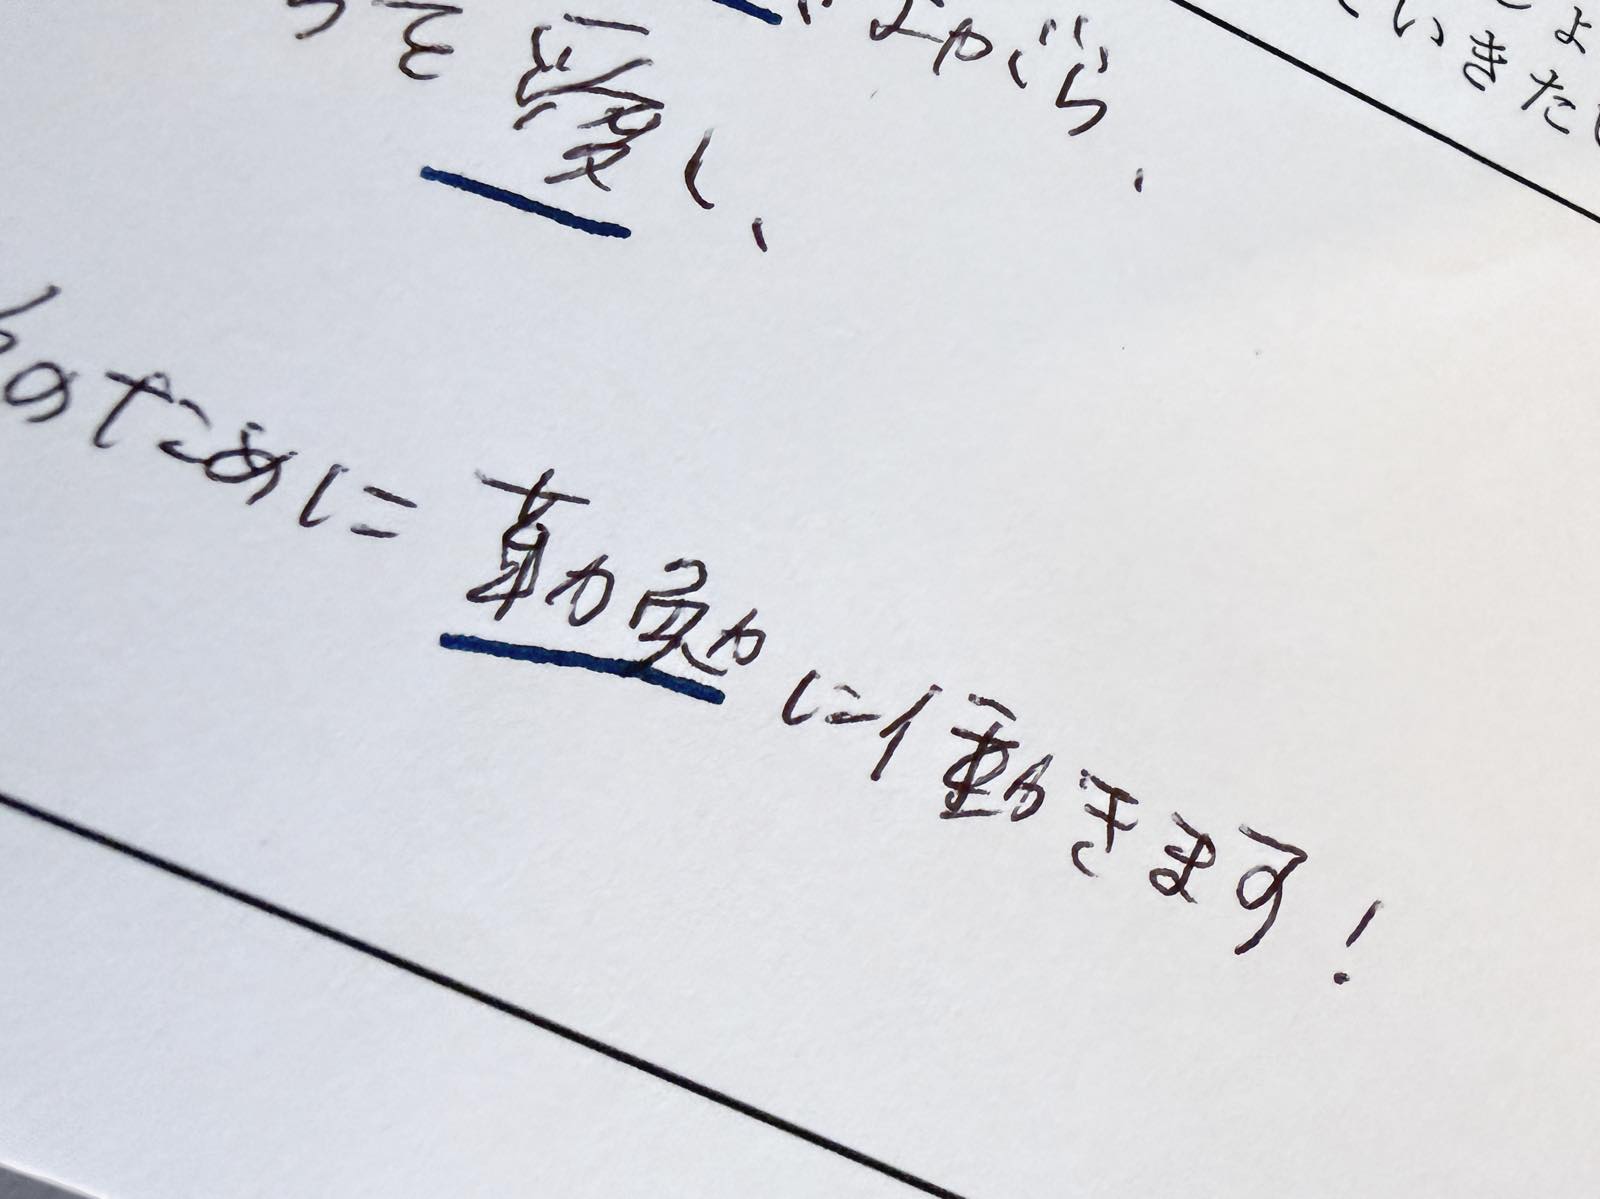 ながら、
を愛し、
のために勤勉に働きます!
ょ
いきた